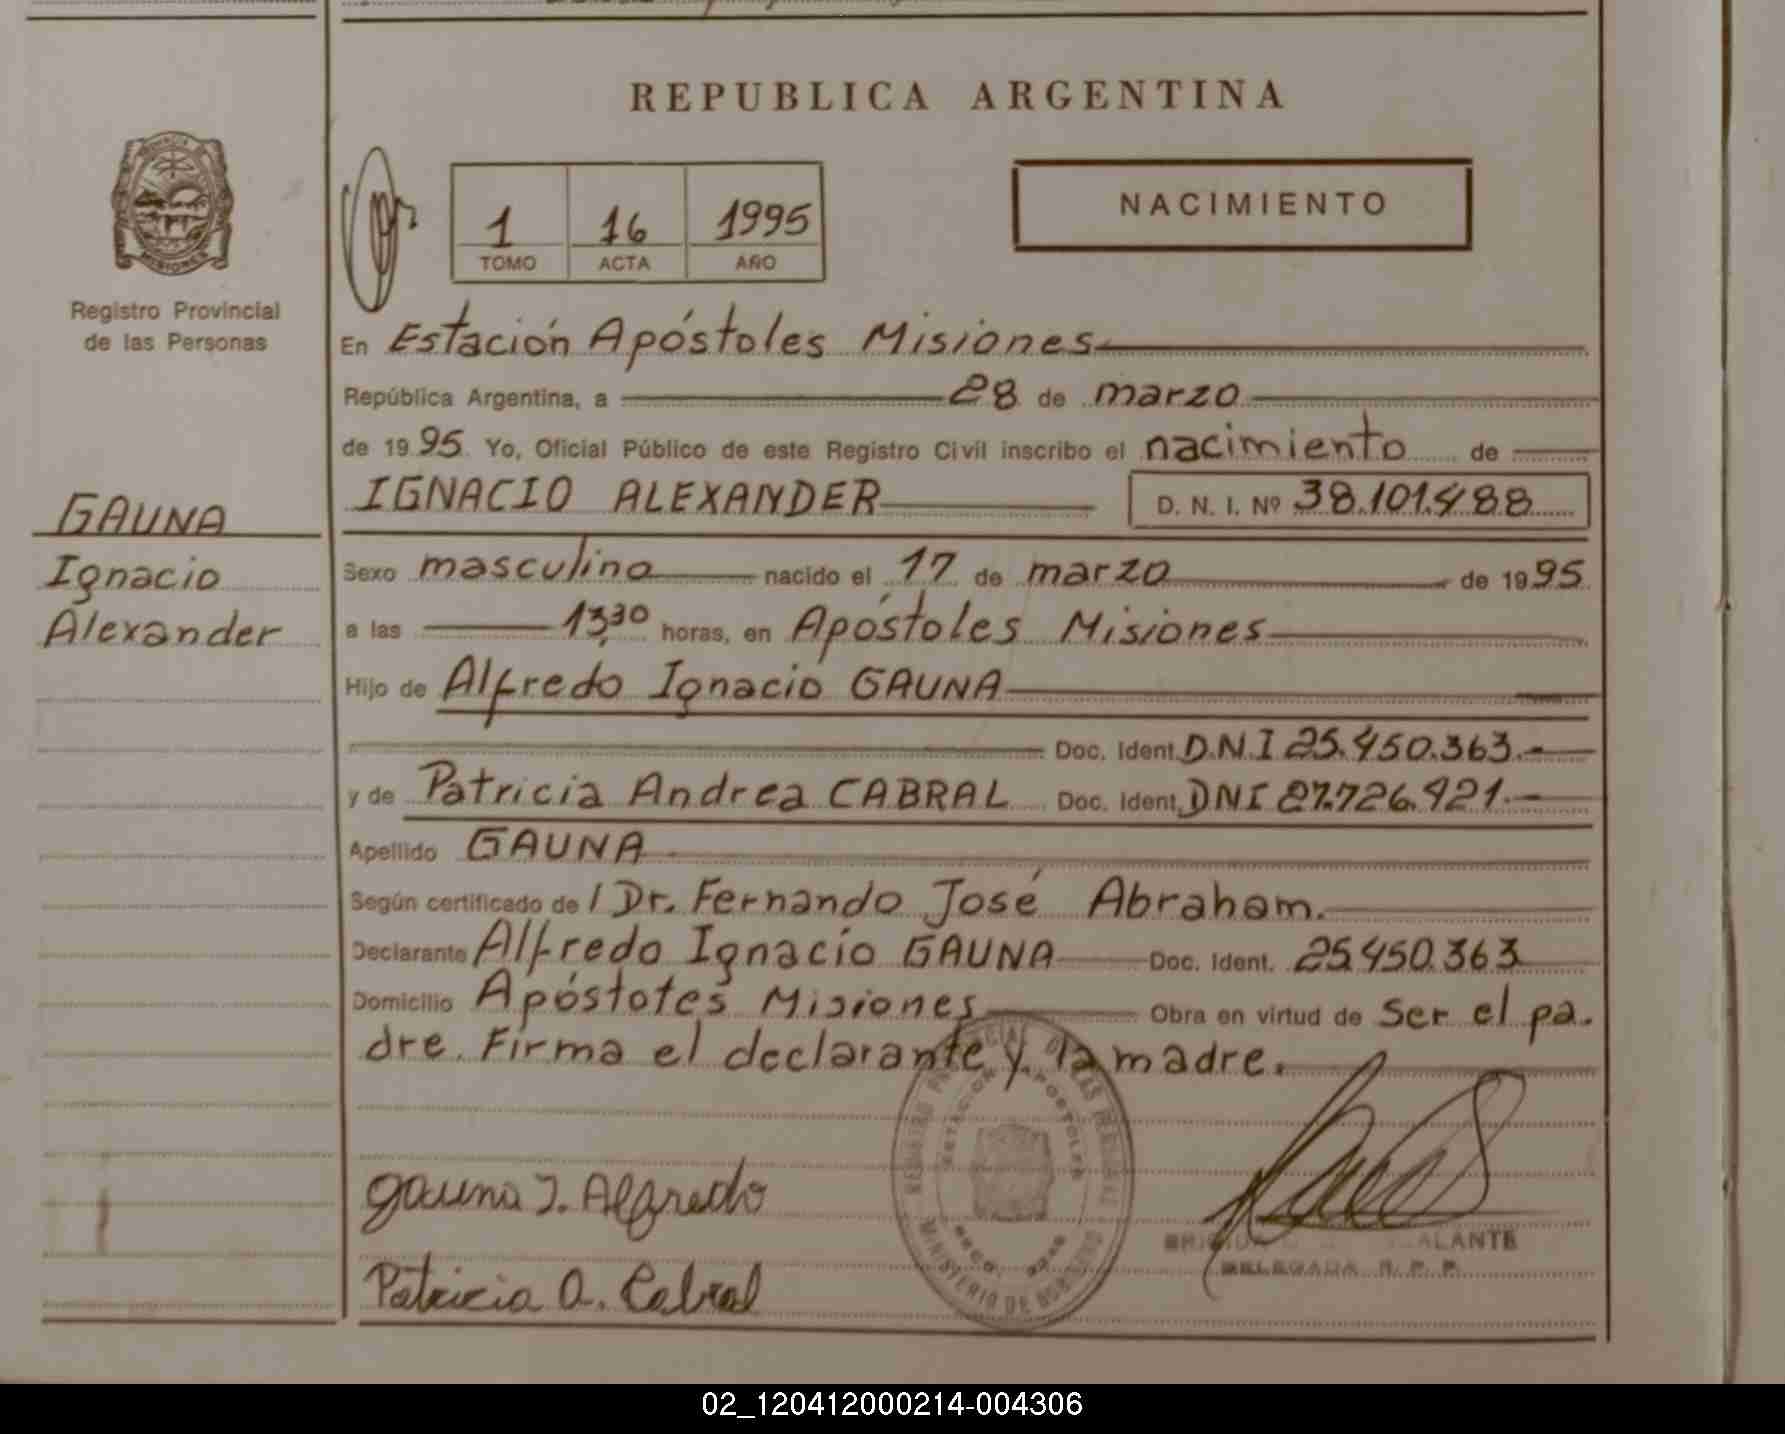 REPUBLICA ARGENTINA
NACIMIENTO
1 16 1995
TOMO ACTA AÑO
Registro Provincial
de las Personas
En Estación Apóstoles Misiones
República Argentina, a 28 de marzo
de 1995. Yo, Oficial Público de este Registro Civil inscribo el nacimiento de
GAUNA
Ignacio
Alexander
IGNACIO ALEXANDER D. N. I. Nº 38.101.488
Sexo masculino nacido el 17 de marzo de 1995
a las 13,30 horas, en Apóstoles Misiones
Hijo de Alfredo Ignacio GAUNA
Doc. Ident. D.N.I 25.450.363.-
y de Patricia Andrea CABRAL Doc. Ident. DNI 27.726.921.-
Apellido GAUNA
Según certificado de / Dr. Fernando José Abraham.
Declarante Alfredo Ignacio GAUNA Doc. Ident. 25.450.363
Domicilio Apóstotes Misiones Obra en virtud de ser el pa.
dre. Firma el declarante y la madre.
gauna I. Alfredo
Patricia A. Cabral
REGISTRO PROVINCIAL DE LAS PERSONAS
ESTACION APOSTOLES
MINISTERIO DE GOBIERNO
DELEGADA R. P. P.
02_120412000214-004306